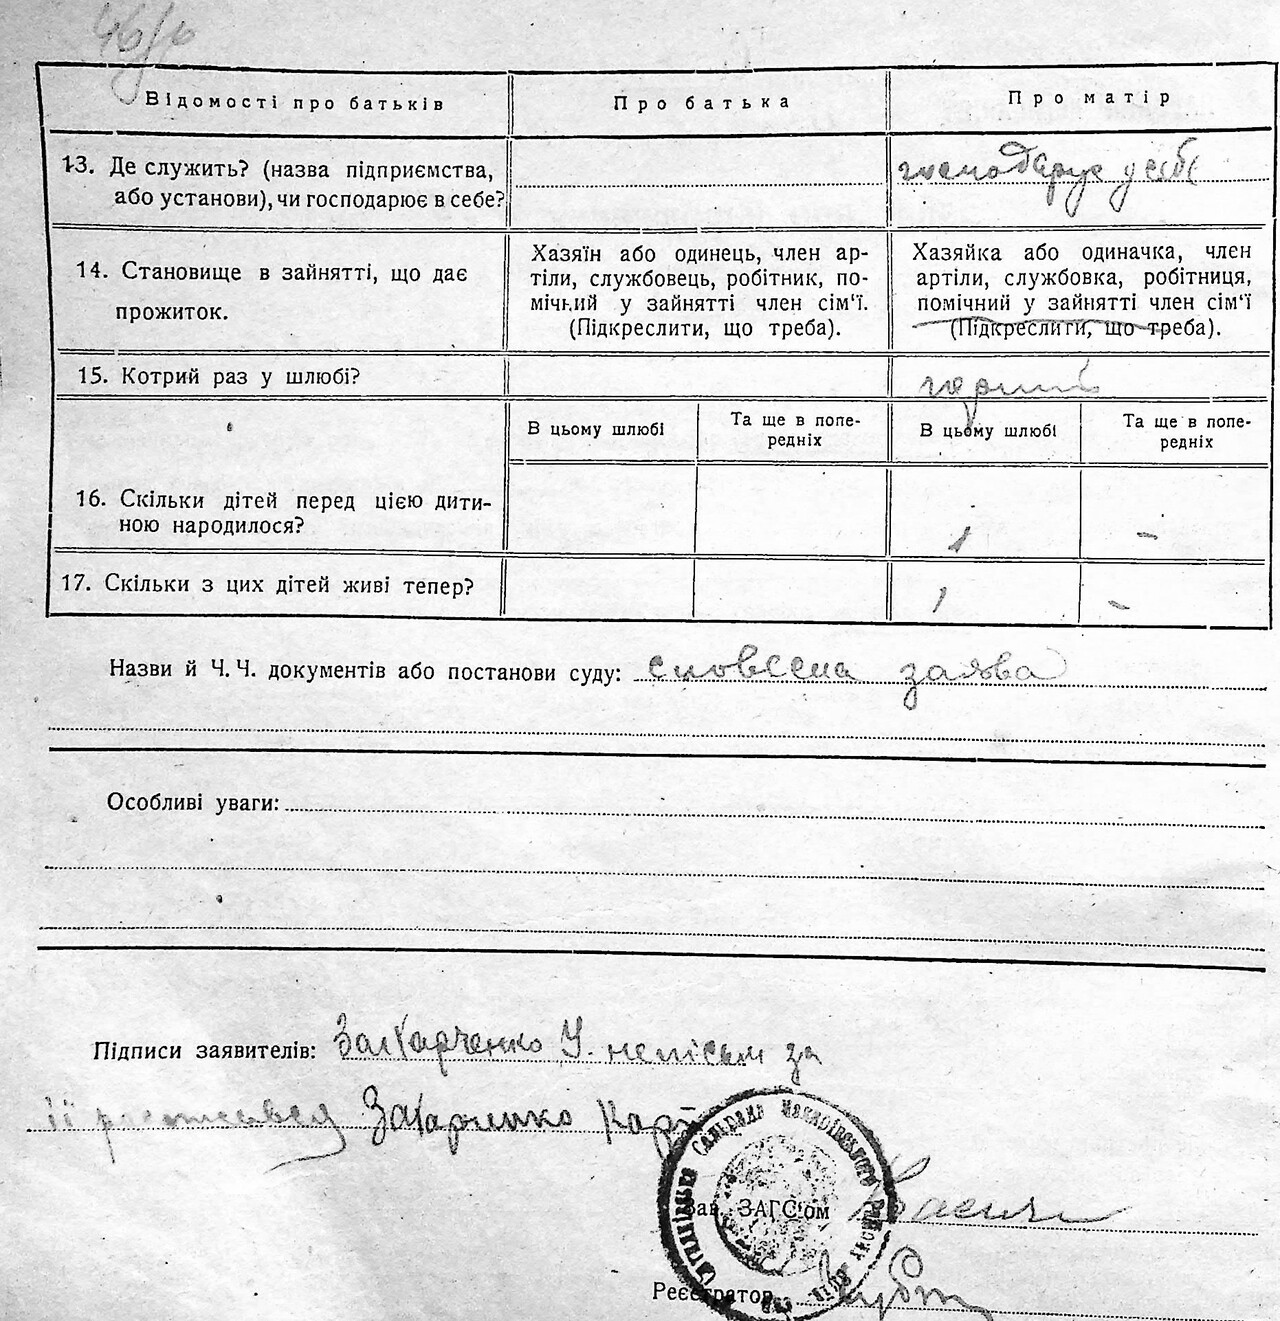 Відомості про батьків
Про батька
Про матір
13. Де служить? (назва підприємства,
або установи), чи господарює в себе?
господарує у себе
14. Становище в зайнятті, що дає
прожиток.
Хазяїн або одинець, член ар-
тіли, службовець, робітник, по-
мічний у зайнятті член сім‘ї.
(Підкреслити, що треба).
Хазяйка або одиначка, член
артіли, службовка, робітниця,
помічний у зайнятті член сім‘ї
(Підкреслити, що треба).
15. Котрий раз у шлюбі?
В цьому шлюбі
Та ще в попе-
редніх
В цьому шлюбі
Та ще в попе-
редніх
16. Скільки дітей перед цією дити-
ною народилося?
1
-
17. Скільки з цих дітей живі тепер?
1
-
Назви й Ч. Ч. документів або постанови суду: словесна заява
Особливі уваги:
Підписи заявителів: Захарченко У. неписьм за
її росписався Захарченко
Зав. ЗАГС'ом
Реєстратор